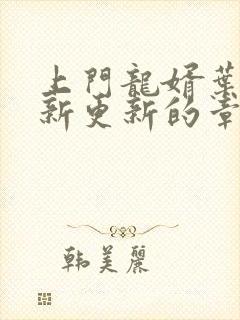 上門龍婿葉
新更新的章
韩美麗